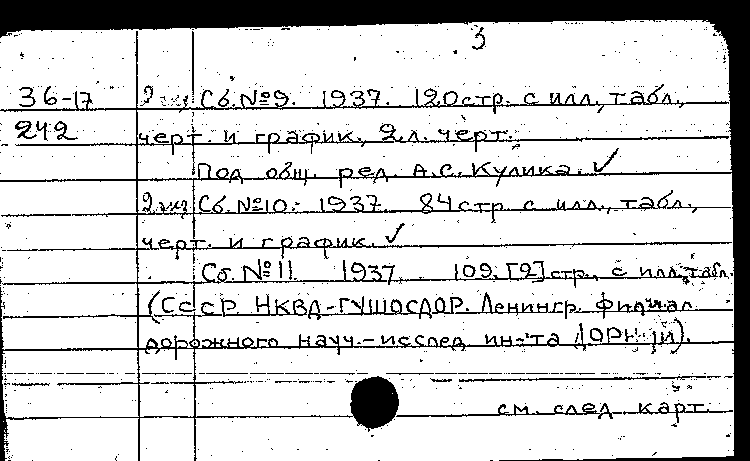 3
36-17 2 экз. Сб. №9. 1937. 120 стр. с илл., табл.,
242 черт. и график., 2 л. черт.
Под общ. ред. А.С. Кулика. ✓
2 экз. Сб. №10. 1937. 84 стр. с илл., табл.,
черт. и график. ✓
Сб. №11 1937. 109, [2] стр., с илл., табл.
(СССР НКВД-ГУШОСДОР. Ленингр. филиал
дорожного науч.-исслед. ин-та ДОРНИИ).
см. след. карт.